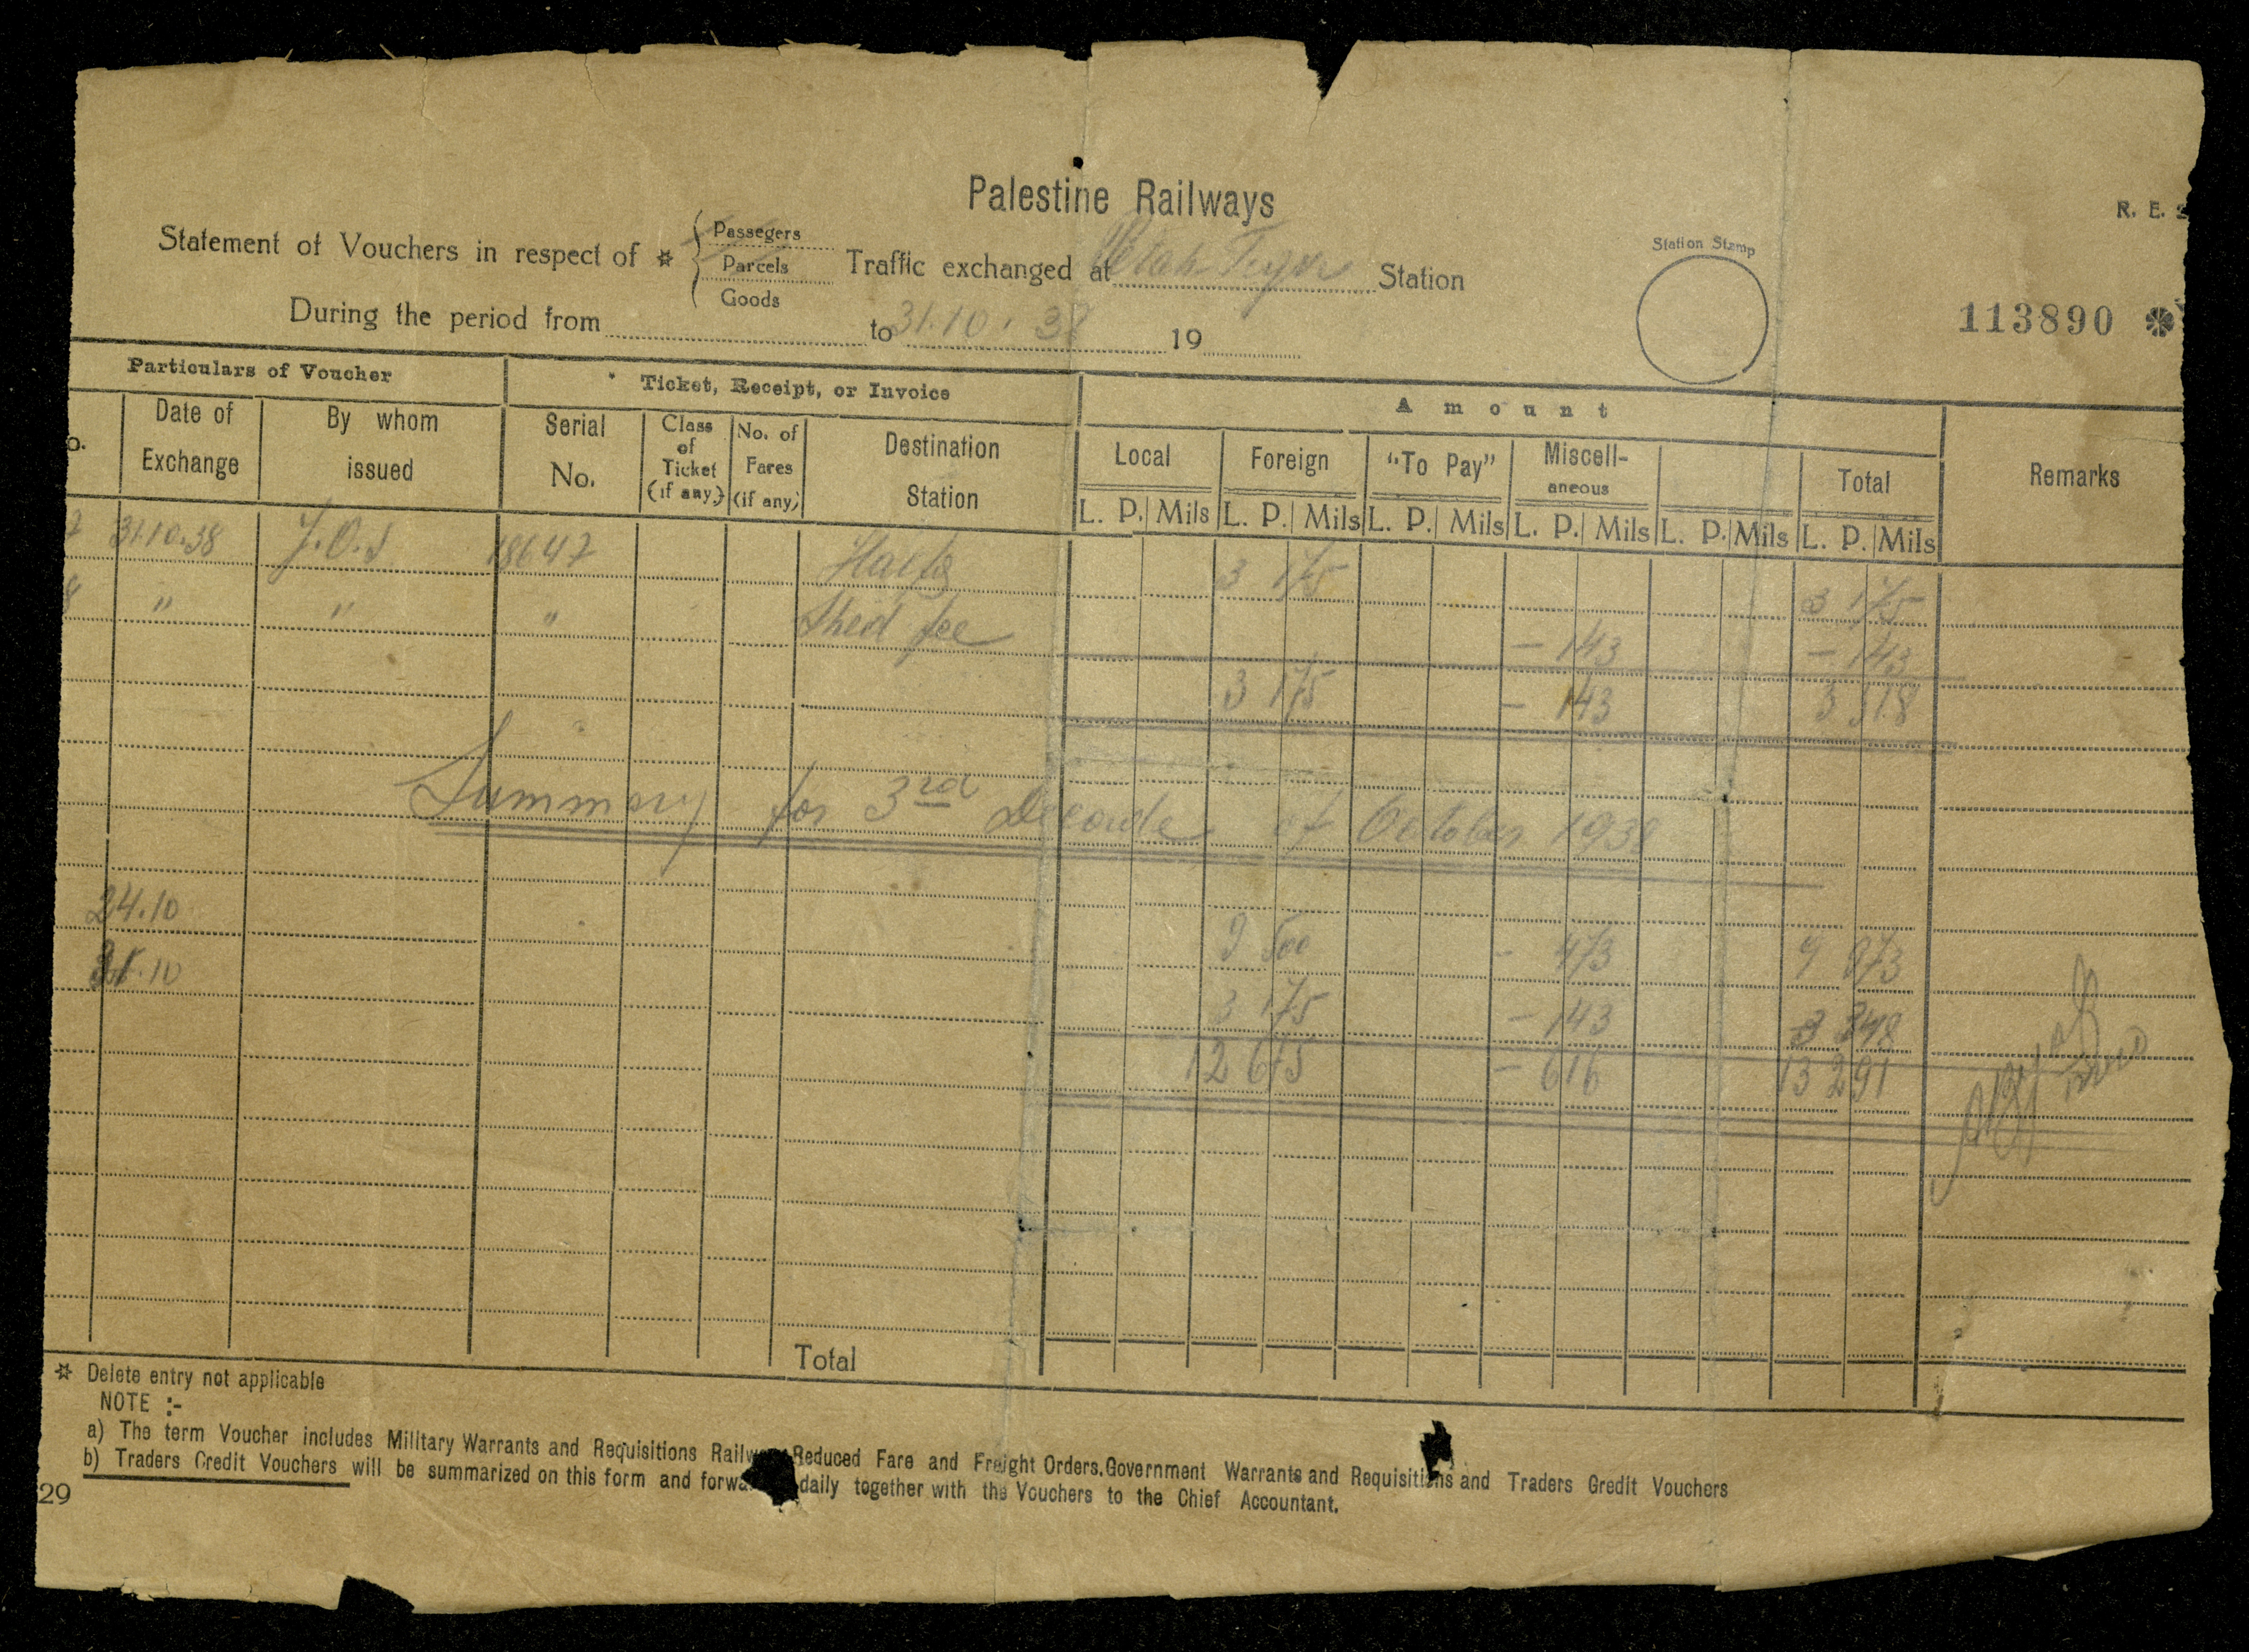 Palestine Railways
R. E.
Statement of Vouchers in respect of ☆ { Passegers Parcels Goods Traffic exchanged at Petah Tiqva Station
Station Stamp
During the period from to 31.10.38 19
113890
Particulars of Voucher Ticket, Receipt, or Invoice Amount Remarks
o. Date of Exchange By whom issued Serial No. Class of Ticket (if any) No. of Fares (if any) Destination Station Local Foreign "To Pay" Miscell-aneous Total
L. P. Mils L. P. Mils L. P. Mils L. P. Mils L. P. Mils L. P. Mils
31.10.38 18647 Haifa 3 175 3 175
" " " Shed fee - 143 - 143
3 175 - 143 3 318
Summary for 3rd Decade of October 1938
24.10 9 500 - 473 9 973
31.10 3 175 - 143 3 318
12 675 - 616 13 291
Total
☆ Delete entry not applicable
NOTE :-
a) The term Voucher includes Military Warrants and Requisitions Reduced Fare and Freight Orders. Government Warrants and Requisitions and Traders Gredit Vouchers
b) Traders Credit Vouchers will be summarized on this form and daily together with the Vouchers to the Chief Accountant.
29